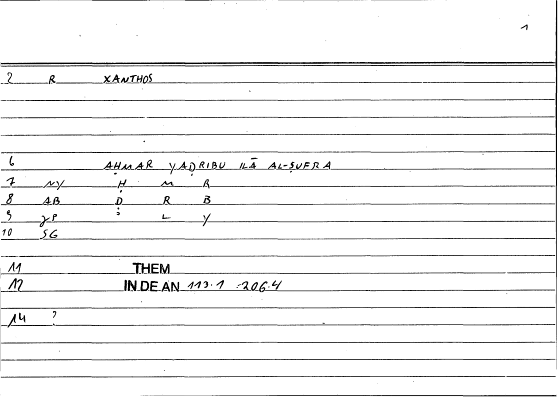 1
2 R XANTHOS
6 AḤMAR YAḌRIBU ILĀ AL-ṢUFRA
7 NY Ḥ M R
8 AB Ḍ R B
9 L Y
10 SG
11 THEM
12 IN DE AN 113.1 -206.4
14 ?